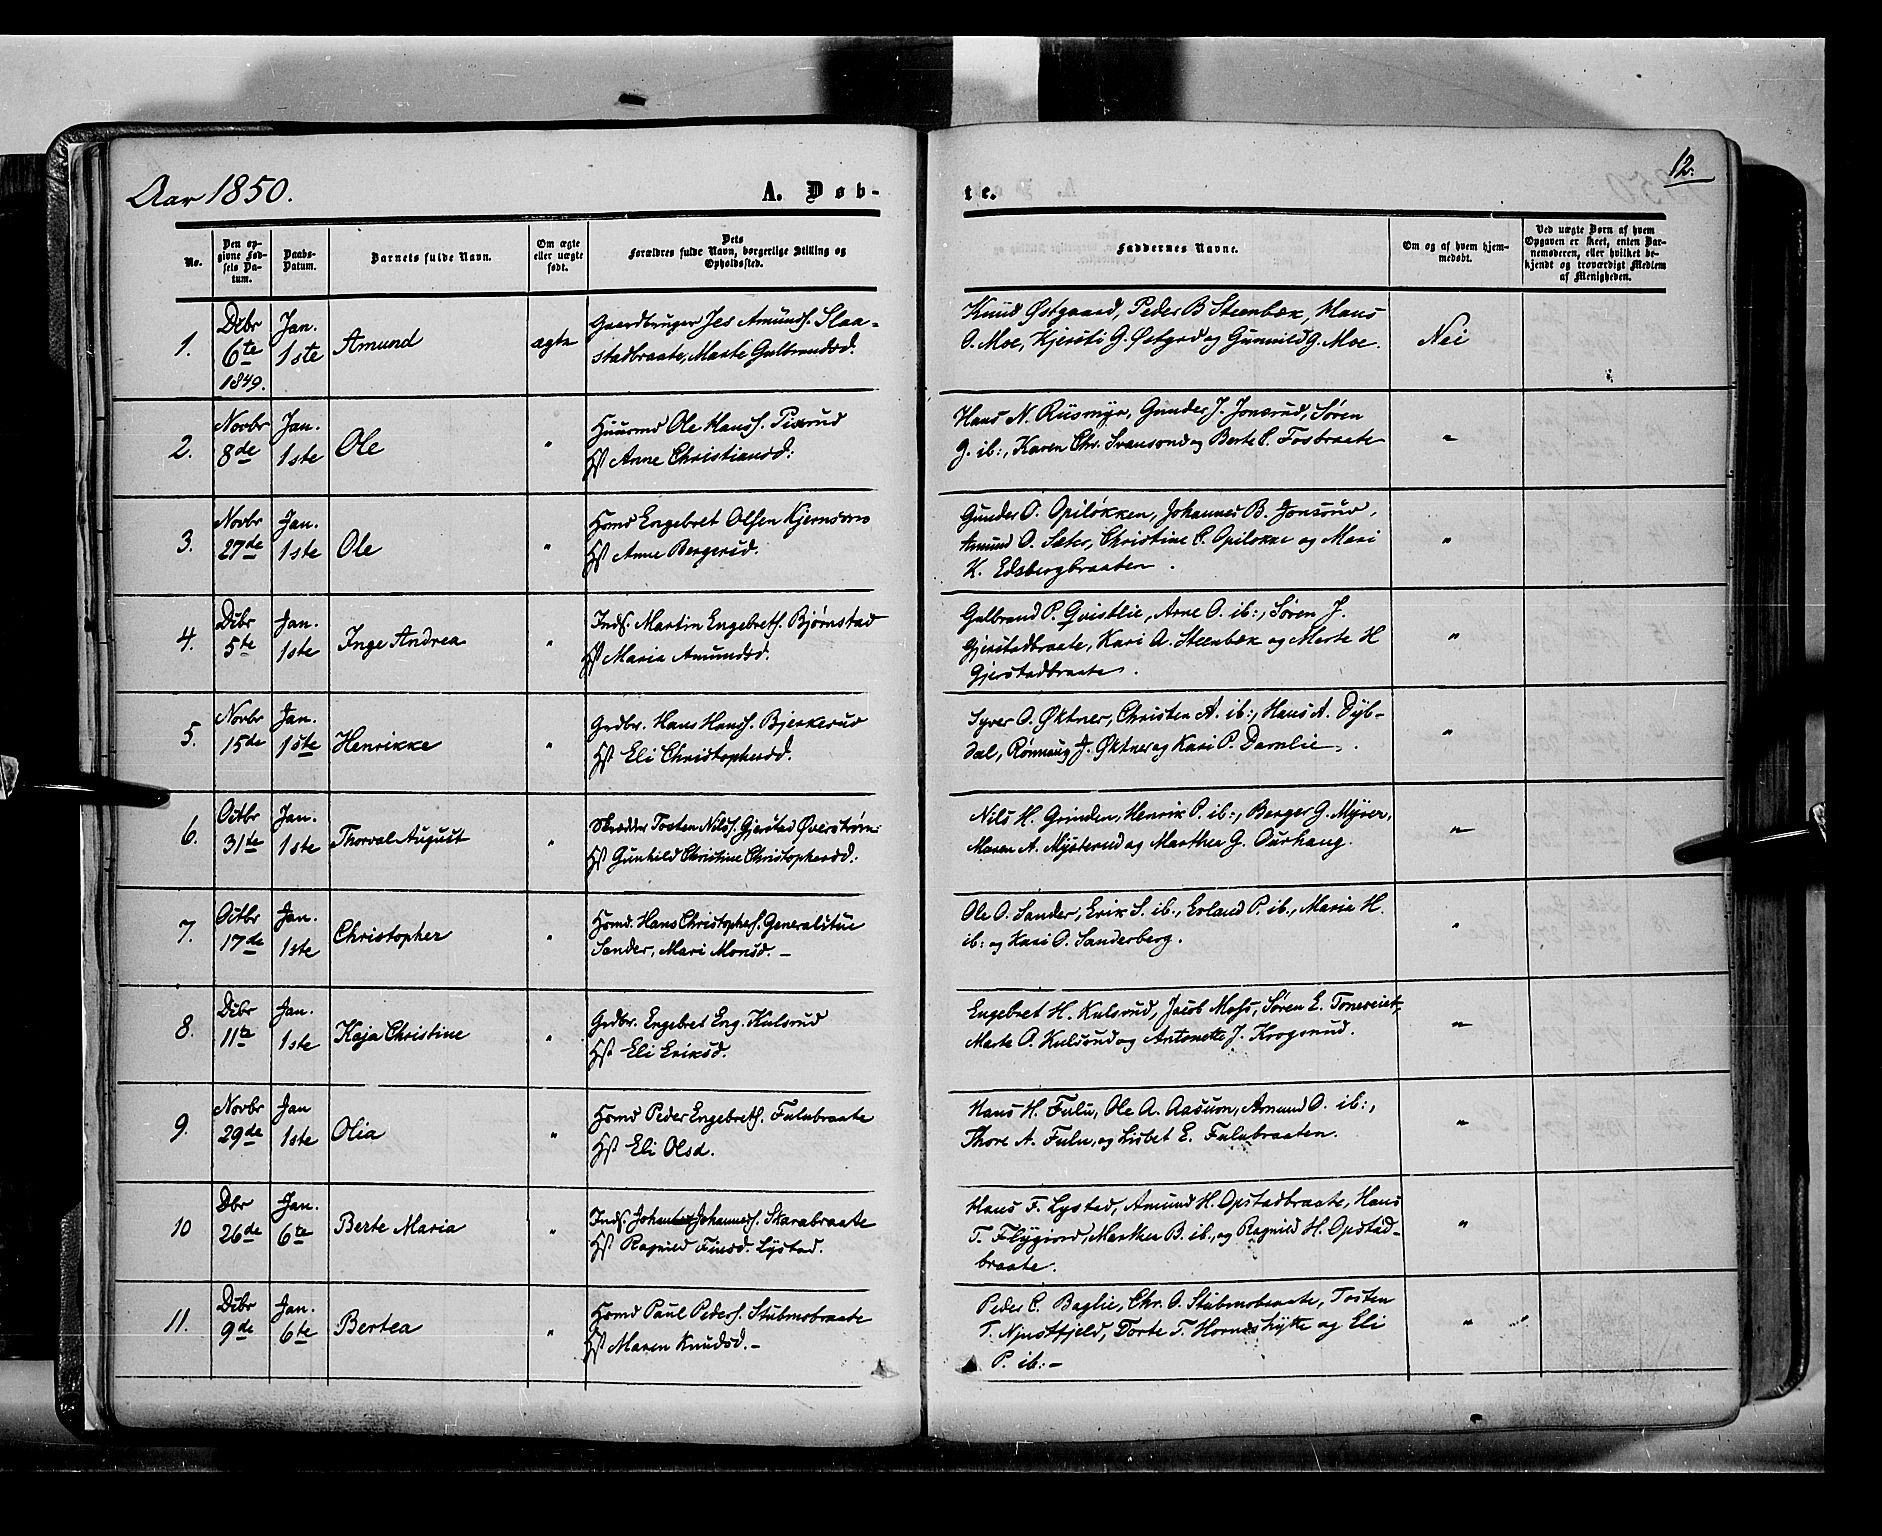 Aar 1850.
A. Døb-
te.
12.
No.
Den op-
givne Fød-
sels Da-
tum.
Daabs-
Datum.
Barnets fulde Navn.
Om ægte
eller uægte
født.
Dets
Forældres fulde Navn, borgerlige Stilling og
Opholdssted.
Faddernes Navne.
Om og af hvem hjem-
medøbt.
Ved uægte Børn af hvem
Opgaven er skeet, enten Bar-
nemoderen, eller hvilket be-
kjendt og troværdigt Medlem
af Menigheden.
1.
Dcbr
6te
1849.
Jan.
1ste
Amund
ægte
Gaardbruger Jes Amunds. Slaa-
stadbraate, Marte Gulbrandsd.
Knud Østgaard, Peder B Steenbæk, Hans
O. Moe, Kjersti G. Østgrd og Gunnild G. Moe.
Nei
2.
Novbr
8de
Jan.
1ste
Ole
"
Huusmd Ole Hans. Pixrud
Hst Anne Christiansd:
Hans N. Riismyr, Gunder J. Jonsrud, Søren
G. ib:, Karen Chr. Svensrud og Berte C. Fosbraate
"
3.
Novbr
27de
Jan.
1ste
Ole
"
Hsmd Engebret Olsen Kjernsmo
Hst Anne Bergersd.
Gunder O. Opiløkken, Johannes B. Jonsrud,
Amund O. Sæter, Christine C. Opiløkke og Mari
K. Edsbergbraaten.
"
4.
Dcbr
5te
Jan.
1ste
Inge Andrea
"
Inds. Martin Engebrets. Bjørnstad
Hst Maria Amundsd.
Gulbrand P. Qvistlie, Arne O. ib:, Søren J.
Gjerstadbraate, Kari A. Steenbæk og Marte H
Gjerstadbraate.
"
5.
Novbr
15de
Jan.
1ste
Henrikke
"
Grdbr. Hans Hans. Bjerkerud
Hst Eli Christophersd.
Syver O. Øktner, Christen A. ib:, Hans A. Dyb-
dal, Rønnaug J. Øktner og Kari P. Damlie.
"
6.
Octbr
31de
Jan.
1ste
Thorval August
"
Skrædder Tosten Nils. Gjerstad Øverstrøm:
Hst Gunhild Christine Christophersd:
Nils H. Grinder, Henrik P. ib:, Berger G. Myrer,
Maren A. Mysterud og Marthea G. Ourhaug.
"
7.
Octbr
17de
Jan.
1ste
Christopher
"
Hsmd. Hans Christophers. Generalstue
Sander, Mari Monsd. —
Ole O. Sander, Erik S. ib., Erland P. ib., Maria H.
ib: og Kari O. Sanderberg.
"
8.
Dcbr
11te
Jan.
1ste
Kaja Christine
"
Grdbr. Engebret Eng. Kulsrud
Hst Eli Eriksd.
Engebret H. Kulsrud, Jacob Mohs, Søren E. Toneveiet,
Marte O. Kulsrud og Antonette J. Krogsrud.
"
9.
Novbr
29de
Jan
1ste
Olia
"
Hsmd Peder Engebrets. Fulubraate
Hst Eli Olsd.
Hans H. Fulu, Ole A. Aasum, Amund O. ib:,
Thore A. Fulu, og Lisbet E. Fulubraaten.
"
10
Dbr
26de
Jan.
6te
Berte Maria
"
Inds. Johannes. Skarabraate
Hst Ragnild Finsd. Lystad.
Hans F. Lystad, Amund H. Opstadbraate, Hans
T. Flygiord, Marthea B. ib., og Ragnild H. Opstad-
braate.
"
11.
Dcbr
9de
Jan.
6te
Bertea
"
Hsmd Paul Peders. Stubmobraate
Hst Maren Knudsd. —
Peder C. Baglie, Chr. O. Stubmobraate, Tosten
T. Njustfjeld, Dorte T. Horneshytte og Eli
P. ib: —
"